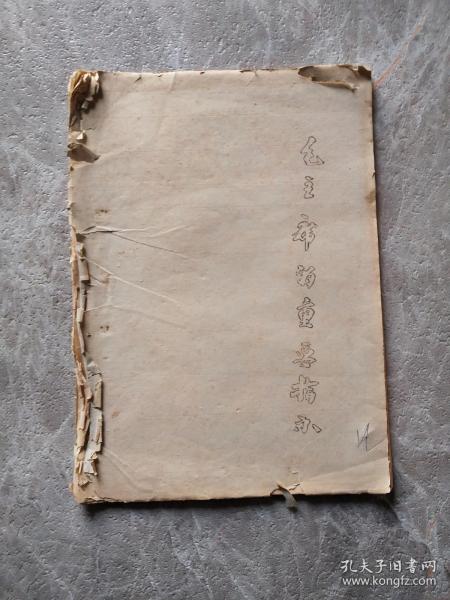 毛主席的重要指示
14
孔夫子旧书网
www.kongfz.com